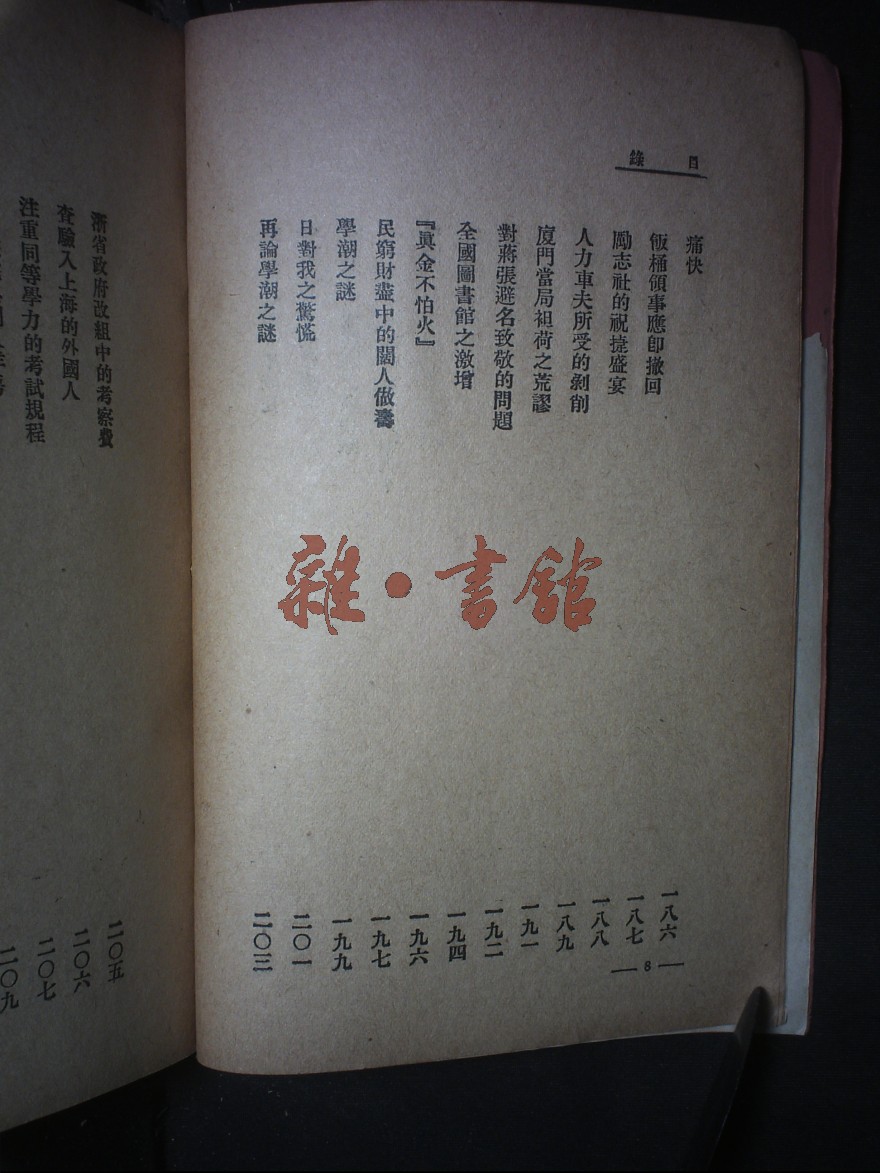 目錄
痛快 一八六
飯桶領事應即撤回 一八七
勵志社的祝捷盛宴 一八八
人力車夫所受的剝削 一八九
廈門當局袒荷之荒謬 一九一
對蔣張避名致敬的問題 一九二
全國圖書館之激增 一九四
『眞金不怕火』 一九六
民窮財盡中的闊人做壽 一九七
學潮之謎 一九九
日對我之驚慌 二〇一
再論學潮之謎 二〇三
— 8 —
雜•書館
浙省政府改組中的考察費 二〇五
查驗入上海的外國人 二〇六
注重同等學力的考試規程 二〇七
二〇九